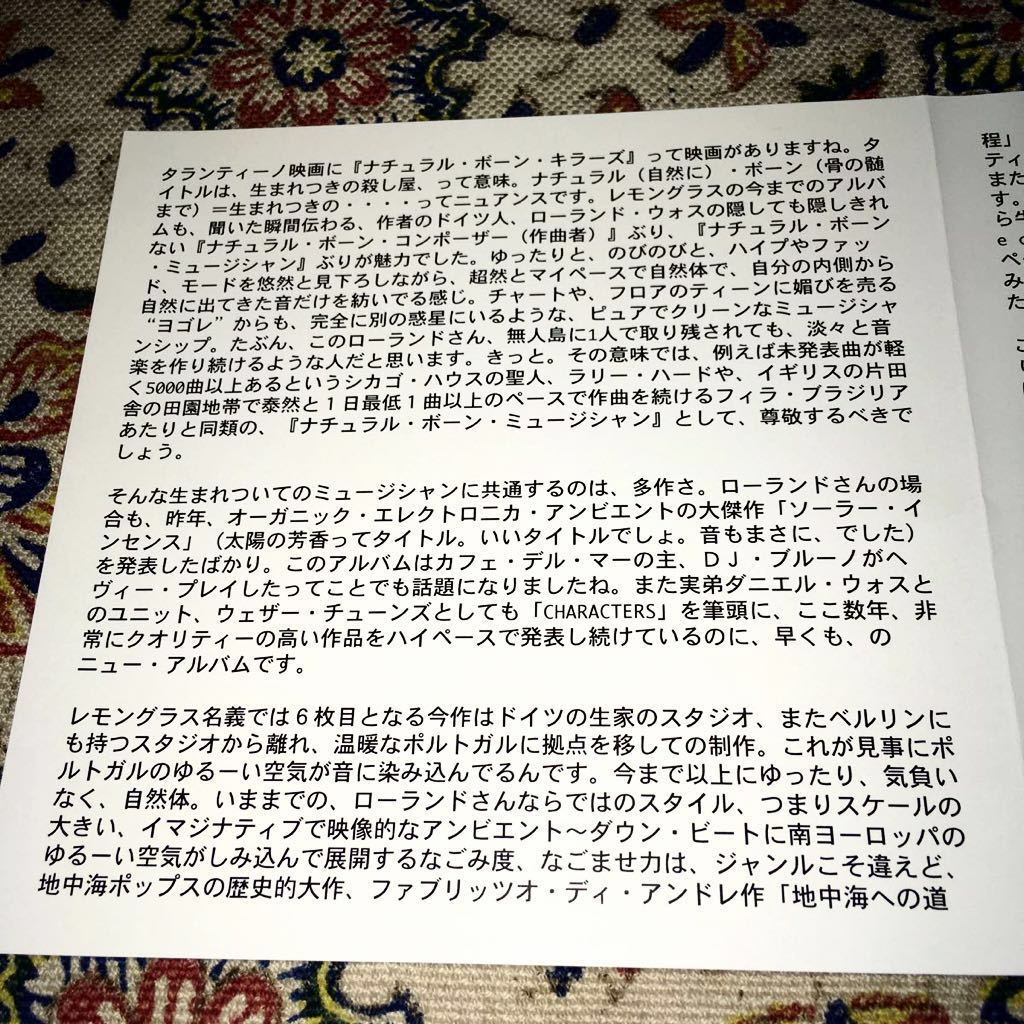 タランティーノ映画に『ナチュラル・ボーン・キラーズ』って映画がありますね。タ
イトルは、生まれつきの殺し屋、って意味。ナチュラル（自然に）・ボーン（骨の髄
まで）＝生まれつきの・・・・ってニュアンスです。レモングラスの今までのアルバ
ムも、聞いた瞬間伝わる、作者のドイツ人、ローランド・ウォスの隠しても隠しきれ
ない『ナチュラル・ボーン・コンポーザー（作曲者）』ぶり、『ナチュラル・ボーン
・ミュージシャン』ぶりが魅力でした。ゆったりと、のびのびと、ハイプやファッ
ド、モードを悠然と見下ろしながら、超然とマイペースで自然体で、自分の内側から
自然に出てきた音だけを紡いでる感じ。チャートや、フロアのティーンに媚びを売る
“ヨゴレ”からも、完全に別の惑星にいるような、ピュアでクリーンなミュージシャ
ンシップ。たぶん、このローランドさん、無人島に1人で取り残されても、淡々と音
楽を作り続けるような人だと思います。きっと。その意味では、例えば未発表曲が軽
く5000曲以上あるというシカゴ・ハウスの聖人、ラリー・ハードや、イギリスの片田
舎の田園地帯で泰然と１日最低１曲以上のペースで作曲を続けるフィラ・ブラジリア
あたりと同類の、『ナチュラル・ボーン・ミュージシャン』として、尊敬するべきで
しょう。
そんな生まれついてのミュージシャンに共通するのは、多作さ。ローランドさんの場
合も、昨年、オーガニック・エレクトロニカ・アンビエントの大傑作「ソーラー・イ
ンセンス」（太陽の芳香ってタイトル。いいタイトルでしょ。音もまさに、でした）
を発表したばかり。このアルバムはカフェ・デル・マーの主、ＤＪ・ブルーノがヘ
ヴィー・プレイしたってことでも話題になりましたね。また実弟ダニエル・ウォスと
のユニット、ウェザー・チューンズとしても「CHARACTERS」を筆頭に、ここ数年、非
常にクオリティーの高い作品をハイペースで発表し続けているのに、早くも、の
ニュー・アルバムです。
レモングラス名義では６枚目となる今作はドイツの生家のスタジオ、またベルリンに
も持つスタジオから離れ、温暖なポルトガルに拠点を移しての制作。これが見事にポ
ルトガルのゆるーい空気が音に染み込んでるんです。今まで以上にゆったり、気負い
なく、自然体。いままでの、ローランドさんならではのスタイル、つまりスケールの
大きい、イマジナティブで映像的なアンビエント～ダウン・ビートに南ヨーロッパの
ゆるーい空気がしみ込んで展開するなごみ度、なごませ力は、ジャンルこそ違えど、
地中海ポップスの歴史的大作、ファブリッツオ・ディ・アンドレ作「地中海への道
程」
ティ
また
す。
ら
ｅ
ペ
み
た